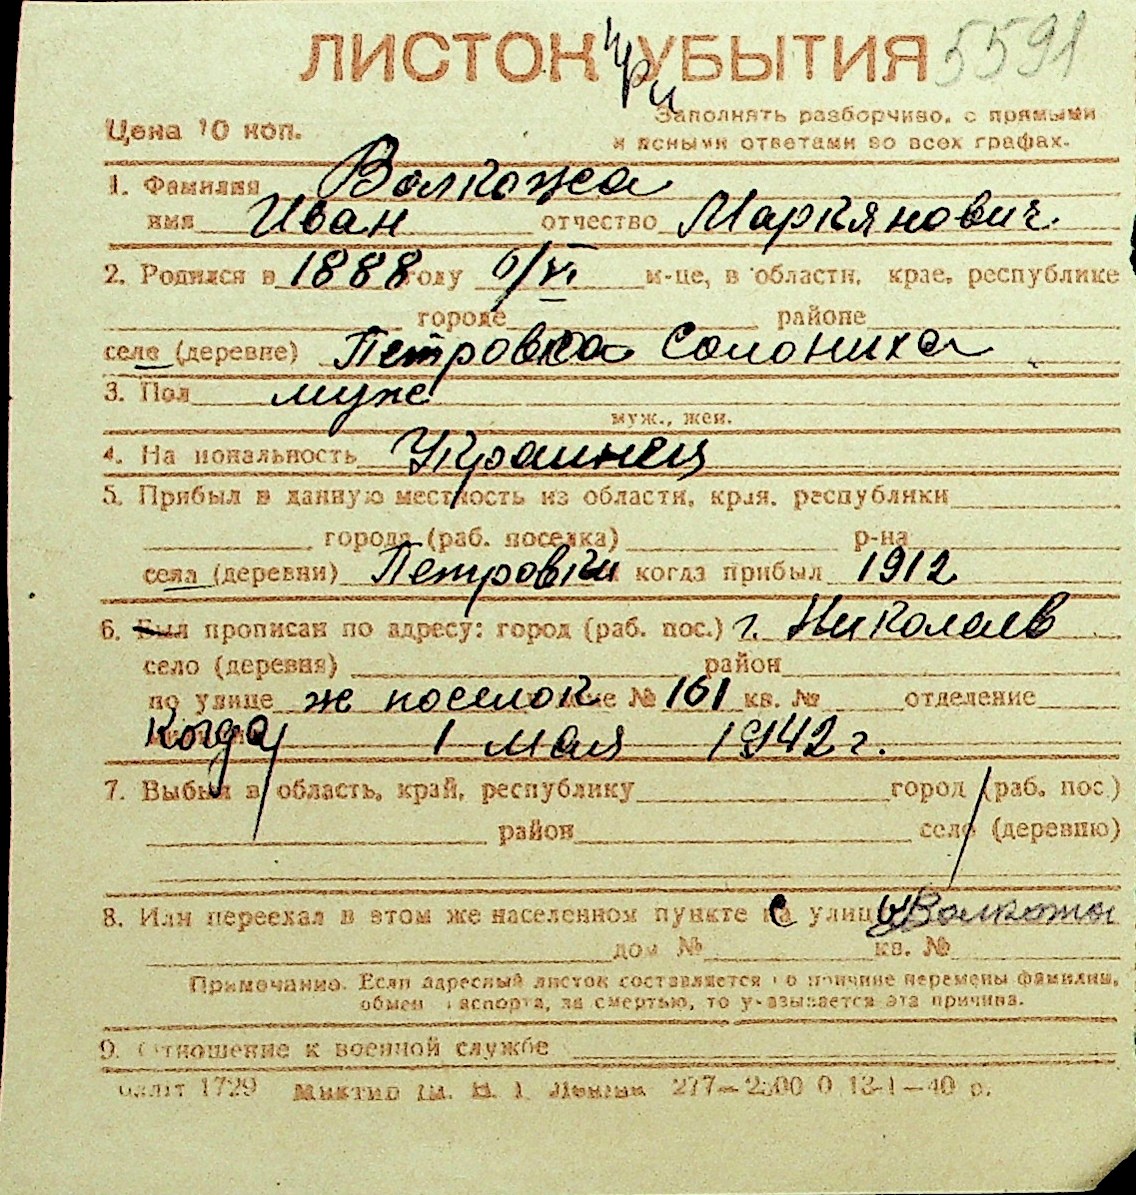 5591
ЛИСТОК при УБЫТИЯ
Заполнять разборчиво, с прямыми
Цена 10 коп.
и ясными ответами во всех графах.
1. Фамилия Волкожа
имя Иван отчество Маркянович
2. Родился в 1888 году 6/VI м-це, в области, крае, республике
городе районе
селе (деревне) Петровка Солониха
3. Пол муже
муж., жен.
4. На иональность Украинец
5. Прибыл в данную местность из области, края, республики
города (раб. поселка) р-на
села (деревни) Петровки когда прибыл 1912
6. Был прописан по адресу: город (раб. пос.) г. Николаев
село (деревня) район
по улице ж поселок № 161 кв. № отделение
Когда 1 мая 1942 г.
7. Выбыл в область, край, республику город (раб. пос.)
район село (деревню)
8. Или переехал в этом же населенном пункте с улицы
дом № кв. №
Примечание. Если адресный листок составляется по причине перемены фамилии,
обмен паспорта, за смертью, то указывается эта причина.
9. Отношение к военной службе
1729 277—2500 0 13-1—40 р.